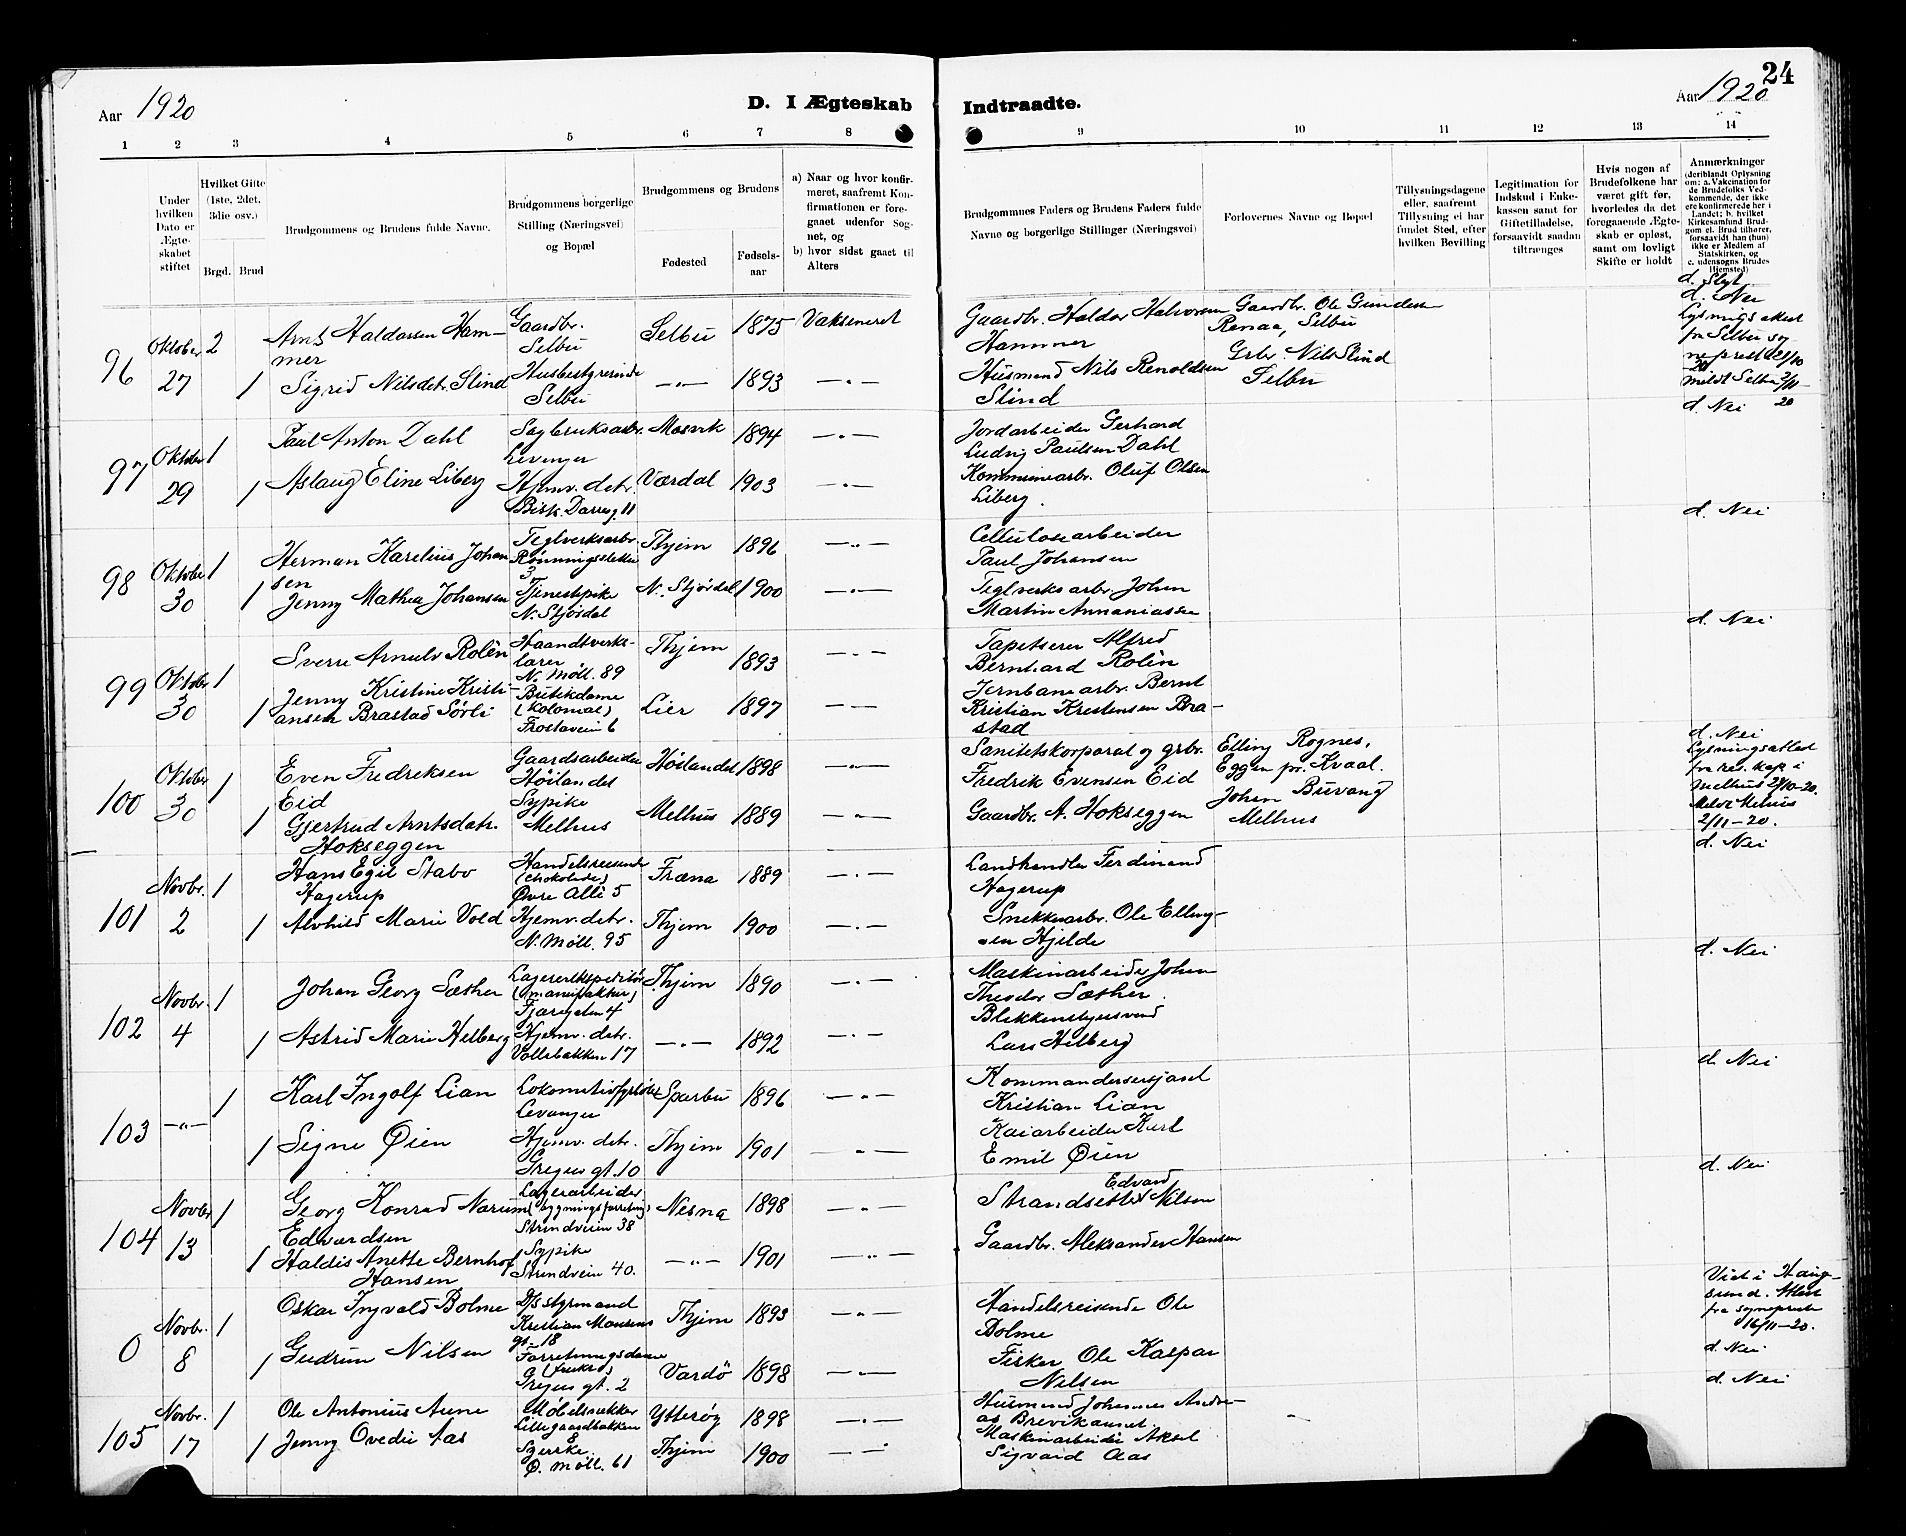 24
Aar 1920
D. I Ægteskab Indtraadte.
Aar 1920
1 2 3 4 5 6 7 8 9 10 11 12 13 14
Under hvilken Dato er Ægteskabet stiftet
Hvilket Gifte (1ste, 2det, 3die osv.)
Brgd. Brud
Brudgommens og Brudens fulde Navne.
Brudgommens borgerlige Stilling (Næringsvei) og Bopæl
Brudgommens og Brudens
Fødested
Fødselsaar
a) Naar og hvor konfirmeret, saafremt Konfirmationen er foregaaet udenfor Sognet, og
b) hvor sidst gaaet til Alters
Brudgommnes Faders og Brudens Faders fulde Navne og borgerlige Stillinger (Næringsvei)
Forlovernes Navne og Bopæl
Tillysningsdagene eller, saafremt Tillysning ei har fundet Sted, efter hvilken Bevilling
Legitimation for Indskud i Enkekassen samt for Giftetilladelse, forsaavidt saadan tiltrænges
Hvis nogen af Brudefolkene har været gift før, hvorledes da det foregaaende Ægteskab er opløst, samt om lovligt Skifte er holdt
Anmærkninger (deriblandt Oplysning om: a. Vakcination for de Brudefolks Vedkommende, der ikke ere konfirmerede her i Landet; b. hvilket Kirkesamfund Brudgom el. Brud tilhører, forsaavidt han (hun) ikke er Medlem af Statskirken, og c. udensogns Brudes Hjemsted)
96 Oktober 27
2 Arnt Haldorsen Hammer
Gaardbr. Selbu
Selbu 1875 Vaksineret
Gaardbr. Haldor Halvorsen Hammer
Gaardbr. Ole Gundersen Renaa, Selbu
1 Sigrid Nilsdtr. Slind
Husbestyrerinde Selbu
— „ — 1893 — „ —
Husmand Nils Renoldsen Slind
Grbr. Nils Slind Selbu
d. Slegt.
d. Nei
Lysnigsattest fra Selbu sogneprest 21/10 20
Meldt Selbu 2/11-20
97 Oktober 29
1 Paul Anton Dahl
Sagbruksarbr. Levanger
Mosvik 1894 — „ —
Jordarbeider Gerhard Ludvig Paulsen Dahl
d. Nei
1 Aslaug Eline Liberg
Hjemv. detr. Bisk. Darresg. 11
Værdal 1903 — „ —
Kommunearbr. Oluf Olsen Liberg.
98 Oktober 30
1 Herman Karelius Johansen
Teglverksarbr. Rønningsletten 3
Thjem 1896 — „ —
Cellulosearbeider Paul Johansen
d. Nei
1 Jenny Mathea Johansen
Tjenestpike N. Stjørdal
N. Stjørdal 1900 — „ —
Teglverksarbr. Johan Martin Annaniassen
99 Oktober 30
1 Sverre Arnulv Rolén
Haandtverkslærer N. Møll. 89
Thjem 1893 — „ —
Tapetserer Alfred Bernhard Rolén
d. Nei
1 Jenny Kristine Kristiansen Brastad Sørli
Butikdame (kolonial) Frostavein 6
Lier 1897 — „ —
Jernbanearbr. Bernt Kristian Kristensen Brastad
100 Oktober 30
1 Even Fredriksen Eid
Gaardsarbeider Høilandet
Høilandet 1898 — „ —
Sanitetskorporal og grbr. Fredrik Evensen Eid
Elling Rognes, Eggen pr. Kvaal.
1 Gjertrud Arntsdatr. Hokseggen
Sypike Melhus
Melhus 1889 — „ —
Gaardbr. A. Hokseggen
Johan Buvang Melhus
d. Nei
Lysningsattest fra res. kap. i Melhus 28/10-20.
Meldt Melhus 2/11-20.
101 Novbr. 2
1 Hans Egil Stabo Hagerup
Handelsreisende (chokolade) Øvre Allé 5
Fræna 1889 — „ —
Landhandler Ferdinand Hagerup
d. Nei
1 Alvhild Marie Vold
Hjemv. detr. N. Møll. 95
Thjem 1900 — „ —
Snekkerarbr. Ole Ellingsen Hjelde
102 Novbr. 4
1 Johan Georg Sæther
Lagerekspeditør (manufaktur) Fjæregaten 4
Thjem 1890 — „ —
Maskinarbeider Johan Theodor Sæther.
d. Nei
1 Astrid Marie Helberg
Hjemv. detr. Vollabakken 17
— „ — 1892 — „ —
Blikkenslagersvend Lars Helberg
103 — „ —
1 Karl Ingolf Lian
Lokomotivfyrbøter Levanger
Sparbu 1896 — „ —
Kommandersersjant Kristian Lian
d. Nei
1 Signe Øien
Hjemv. detr. Gregus gt. 10
Thjem 1901 — „ —
Kaiarbeider Karl Emil Øien
104 Novbr. 13
1 Georg Konrad Narum Edvardsen
Lagerarbeider (bygningsforretning) Strindveien 38
Nesna 1898 — „ —
Strandsetter Edvard Nilsen
d. Nei
1 Haldis Anette Bernhof Hansen
Sypike Strindveien 40.
— „ — 1901 — „ —
Gaardbr. Aleksander Hansen
0 Novbr. 8
1 Oskar Ingvald Bolme
D/S styrmand Kristian Monsens gt. 18
Thjem 1893 — „ —
Handelsreisende Ole Bolme
Viet i Haugesund. Attest fra sogneprest 16/11-20.
1 Gudrun Nilsen
Forretningsdame (frukt) Gregus gt. 2
Vardö 1898 — „ —
Fisker Ole Kaspar Nilsen
d. Nei
105 Novbr. 17
1 Ole Antonius Aune
Møbelsnekker Lillegaardsbakken 8
Ytterøy 1898 — „ —
Husmand Johannes Andreas Brevikaunet.
d. Nei
1 Jenny Ovedie Aas
Syerske. Ø. Møll. 61
Thjem 1900 — „ —
Maskinarbeider Aksel Sigvard Aas